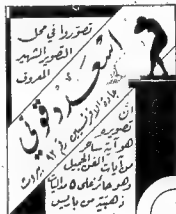 تصوّروا في محل
التصوير الشهير
المعروف
اسعد دقوني
جادة الافرنسيين رقم
ان
تصويره
هو آية ساحرة
من آيات الفن الجميل
وهو حائز على ٥ مداليات
ذهبية من باريس